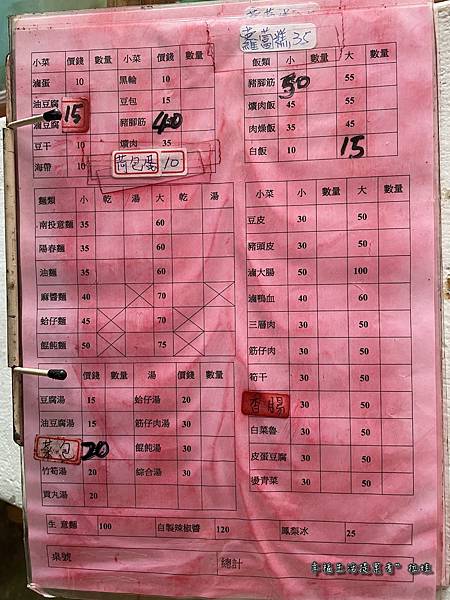 蘿蔔糕 35
小菜 價錢 數量 小菜 價錢 數量
滷蛋 10 黑輪 10
油豆腐 15 豆包 15
滷豆腐 豬腳筋 40
豆干 10 爌肉 35
海帶 10 荷包蛋 10
飯類 小 數量 大 數量
豬腳筋 50 55
爌肉飯 45 55
肉燥飯 35 45
白飯 10 15
麵類 小 乾 湯 大 乾 湯
南投意麵 35 60
陽春麵 35 60
油麵 35 60
麻醬麵 40 70
蛤仔麵 45 70
餛飩麵 50 75
小菜 小 數量 大 數量
豆皮 30 50
豬頭皮 30 50
滷大腸 50 100
滷鴨血 40 60
三層肉 30 50
筋仔肉 30 50
筍干 30 50
香腸 30 50
白菜魯 30 50
皮蛋豆腐 30 50
燙青菜 30 50
湯 價錢 數量 湯 價錢 數量
豆腐湯 15 蛤仔湯 20
油豆腐湯 15 筋仔肉湯 30
菜包 20 餛飩湯 30
竹筍湯 20 綜合湯 30
貢丸湯 20
生意麵 100 自製辣椒醬 120 鳳梨冰 25
桌號 總計
幸福生活提案者" 拉拉